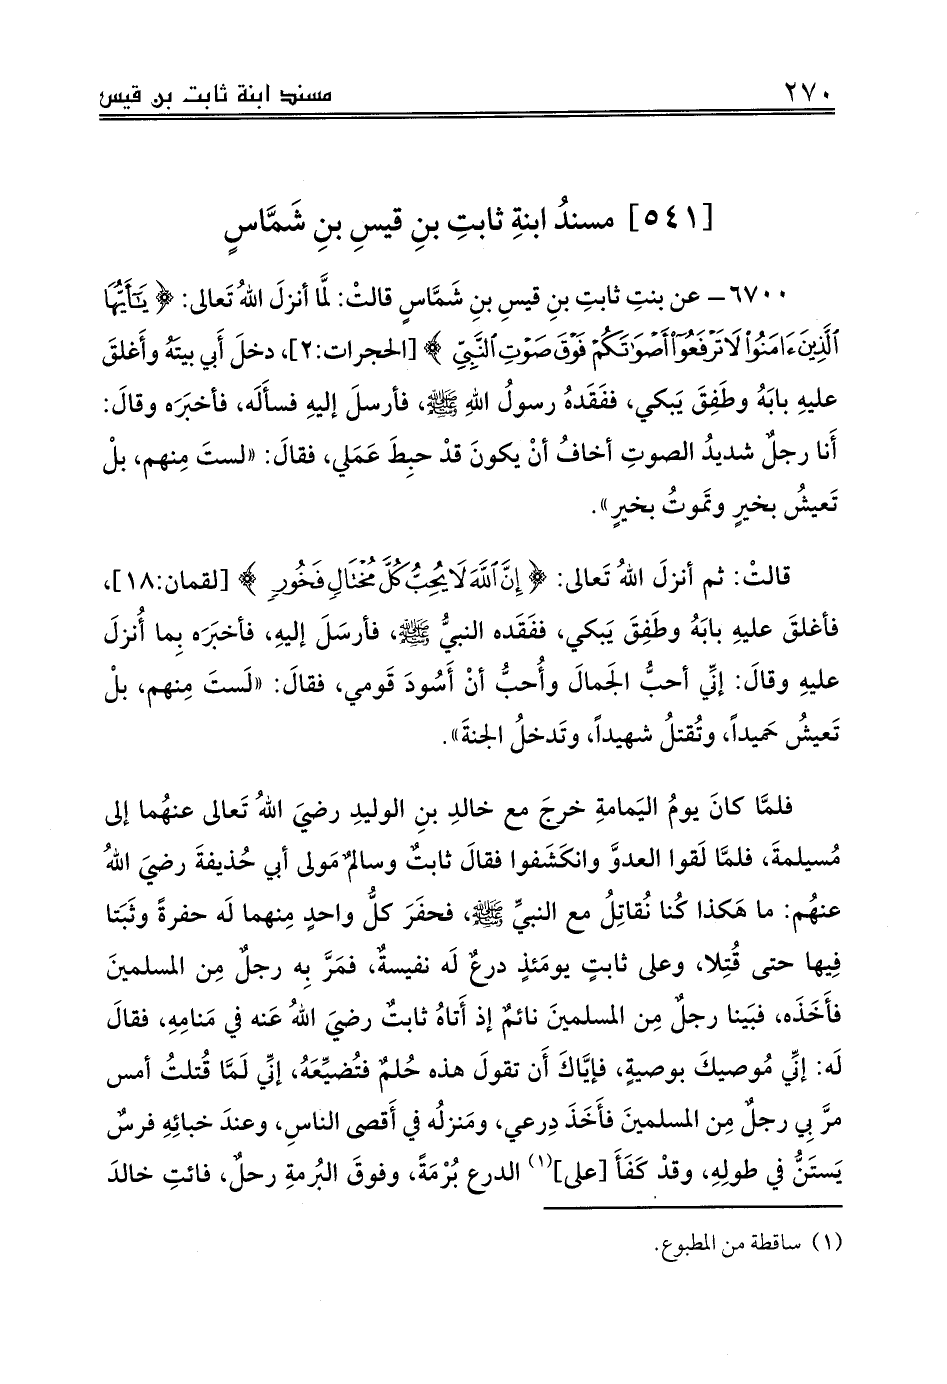 ٢٧٠ مسند ابنة ثابت بن قيس
[٥٤١] مسندُ ابنةِ ثابتِ بنِ قيسِ بنِ شَمَّاسٍ
٦٧٠٠- عن بنتِ ثابتِ بنِ قيسِ بنِ شَمَّاسٍ قالتْ: لمَّا أنزلَ اللهُ تَعالى: ﴿ يَٰٓأَيُّهَا
ٱلَّذِينَ ءَامَنُوا۟ لَا تَرْفَعُوٓا۟ أَصْوَٰتَكُمْ فَوْقَ صَوْتِ ٱلنَّبِىِّ ﴾ [الحجرات:٢]، دخلَ أبي بيتَهُ وأَغلقَ
عليهِ بابَهُ وطَفِقَ يَبكي، ففَقَدهُ رسولُ اللهِ ﷺ، فأرسلَ إليهِ فسأَلَه، فأخبَرَه وقالَ:
أَنا رجلٌ شديدُ الصوتِ أخافُ أنْ يكونَ قدْ حبِطَ عَمَلي، فقالَ: «لستَ مِنهم، بلْ
تَعيشُ بخيرٍ وتَموتُ بخيرٍ».
قالتْ: ثم أنزلَ اللهُ تَعالى: ﴿ إِنَّ ٱللَّهَ لَا يُحِبُّ كُلَّ مُخْتَالٍ فَخُورٍ ﴾ [لقمان:١٨]،
فأغلقَ عليهِ بابَهُ وطَفِقَ يَبكي، ففَقَده النبيُّ ﷺ، فأرسَلَ إليهِ، فأخبَرَه بِما أُنزلَ
عليهِ وقالَ: إنِّي أحبُّ الجَمالَ وأُحبُّ أنْ أَسُودَ قَومي، فقالَ: «لَستَ مِنهم، بلْ
تَعيشُ حَميداً، وتُقتلُ شهيداً، وتَدخلُ الجنةَ».
فلمَّا كانَ يومُ اليَمامةِ خرجَ مع خالدِ بنِ الوليدِ رضيَ اللهُ تَعالى عنهُما إلى
مُسيلمةَ، فلمَّا لَقوا العدوَّ وانكَشَفوا فقالَ ثابتٌ وسالمٌ مَولى أبي حُذيفةَ رضيَ اللهُ
عنهُم: ما هَكذا كُنا نُقاتِلُ مع النبيِّ ﷺ، فحفَرَ كلُّ واحدٍ مِنهما لَه حفرةً وثَبَتا
فِيها حتى قُتِلا، وعلى ثابتٍ يومَئذٍ درعٌ لَه نفيسةٌ، فمَرَّ بِه رجلٌ مِن المسلمينَ
فأَخَذَه، فبَينا رجلٌ مِن المسلمينَ نائمٌ إذ أَتاهُ ثابتٌ رضيَ اللهُ عَنه في مَنامِهِ، فقالَ
لَه: إنِّي مُوصيكَ بوصيةٍ، فإيَّاكَ أَن تقولَ هذه حُلمٌ فتُضيِّعَهُ، إنِّي لَمَّا قُتلتُ أمس
مرَّ بِي رجلٌ مِن المسلمينَ فأَخَذَ دِرعي، ومَنزلُه في أَقصى الناسِ، وعندَ خبائِهِ فرسٌ
يَستَنُّ في طولِهِ، وقدْ كَفَأَ [على](١) الدرعِ بُرْمَةً، وفوقَ البُرمةِ رحلٌ، فائتِ خالدَ
(١) ساقطة من المطبوع.